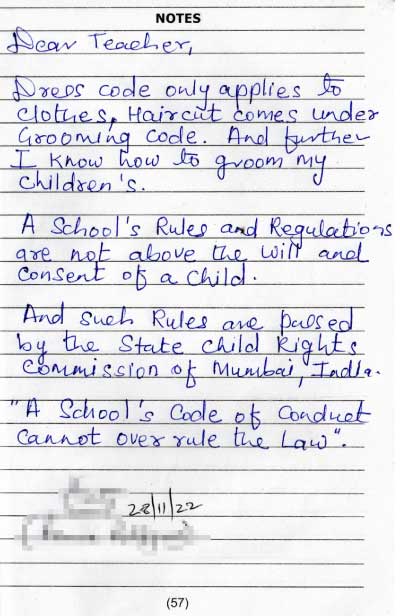 NOTES
Dear Teacher,
Dress code only applies to
clothes, Haircut comes under
Grooming Code. And further
I know how to groom my
children's.
A School's Rules and Regulations
are not above the will and
consent of a child.
And such Rules are passed
by the State Child Rights
Commission of Mumbai, India.
"A School's Code of Conduct
cannot over rule the Law".
28/11/22
(57)